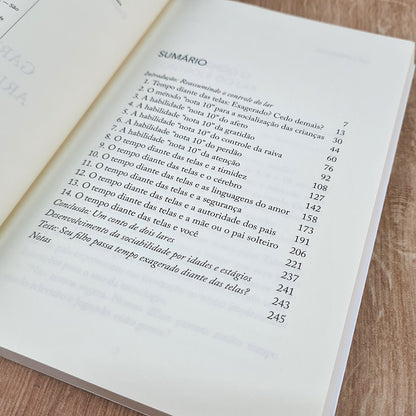 — São
SUMÁRIO
Introdução: Reassumindo o controle do lar 7
1. Tempo diante das telas: Exagerado? Cedo demais? 13
2. O método "nota 10" para a socialização das crianças 30
3. A habilidade "nota 10" do afeto 44
4. A habilidade "nota 10" da gratidão 60
5. A habilidade "nota 10" do controle da raiva 76
6. A habilidade "nota 10" do perdão 92
7. A habilidade "nota 10" da atenção 108
8. O tempo diante das telas e a timidez 127
9. O tempo diante das telas e o cérebro 142
10. O tempo diante das telas e as linguagens do amor 158
11. O tempo diante das telas e a segurança 173
12. O tempo diante das telas e a autoridade dos pais 191
13. O tempo diante das telas e a mãe ou o pai solteiro 206
14. O tempo diante das telas e você 221
Conclusão: Um conto de dois lares 237
Desenvolvimento da sociabilidade por idades e estágios 241
Teste: Seu filho passa tempo exagerado diante das telas? 243
Notas 245